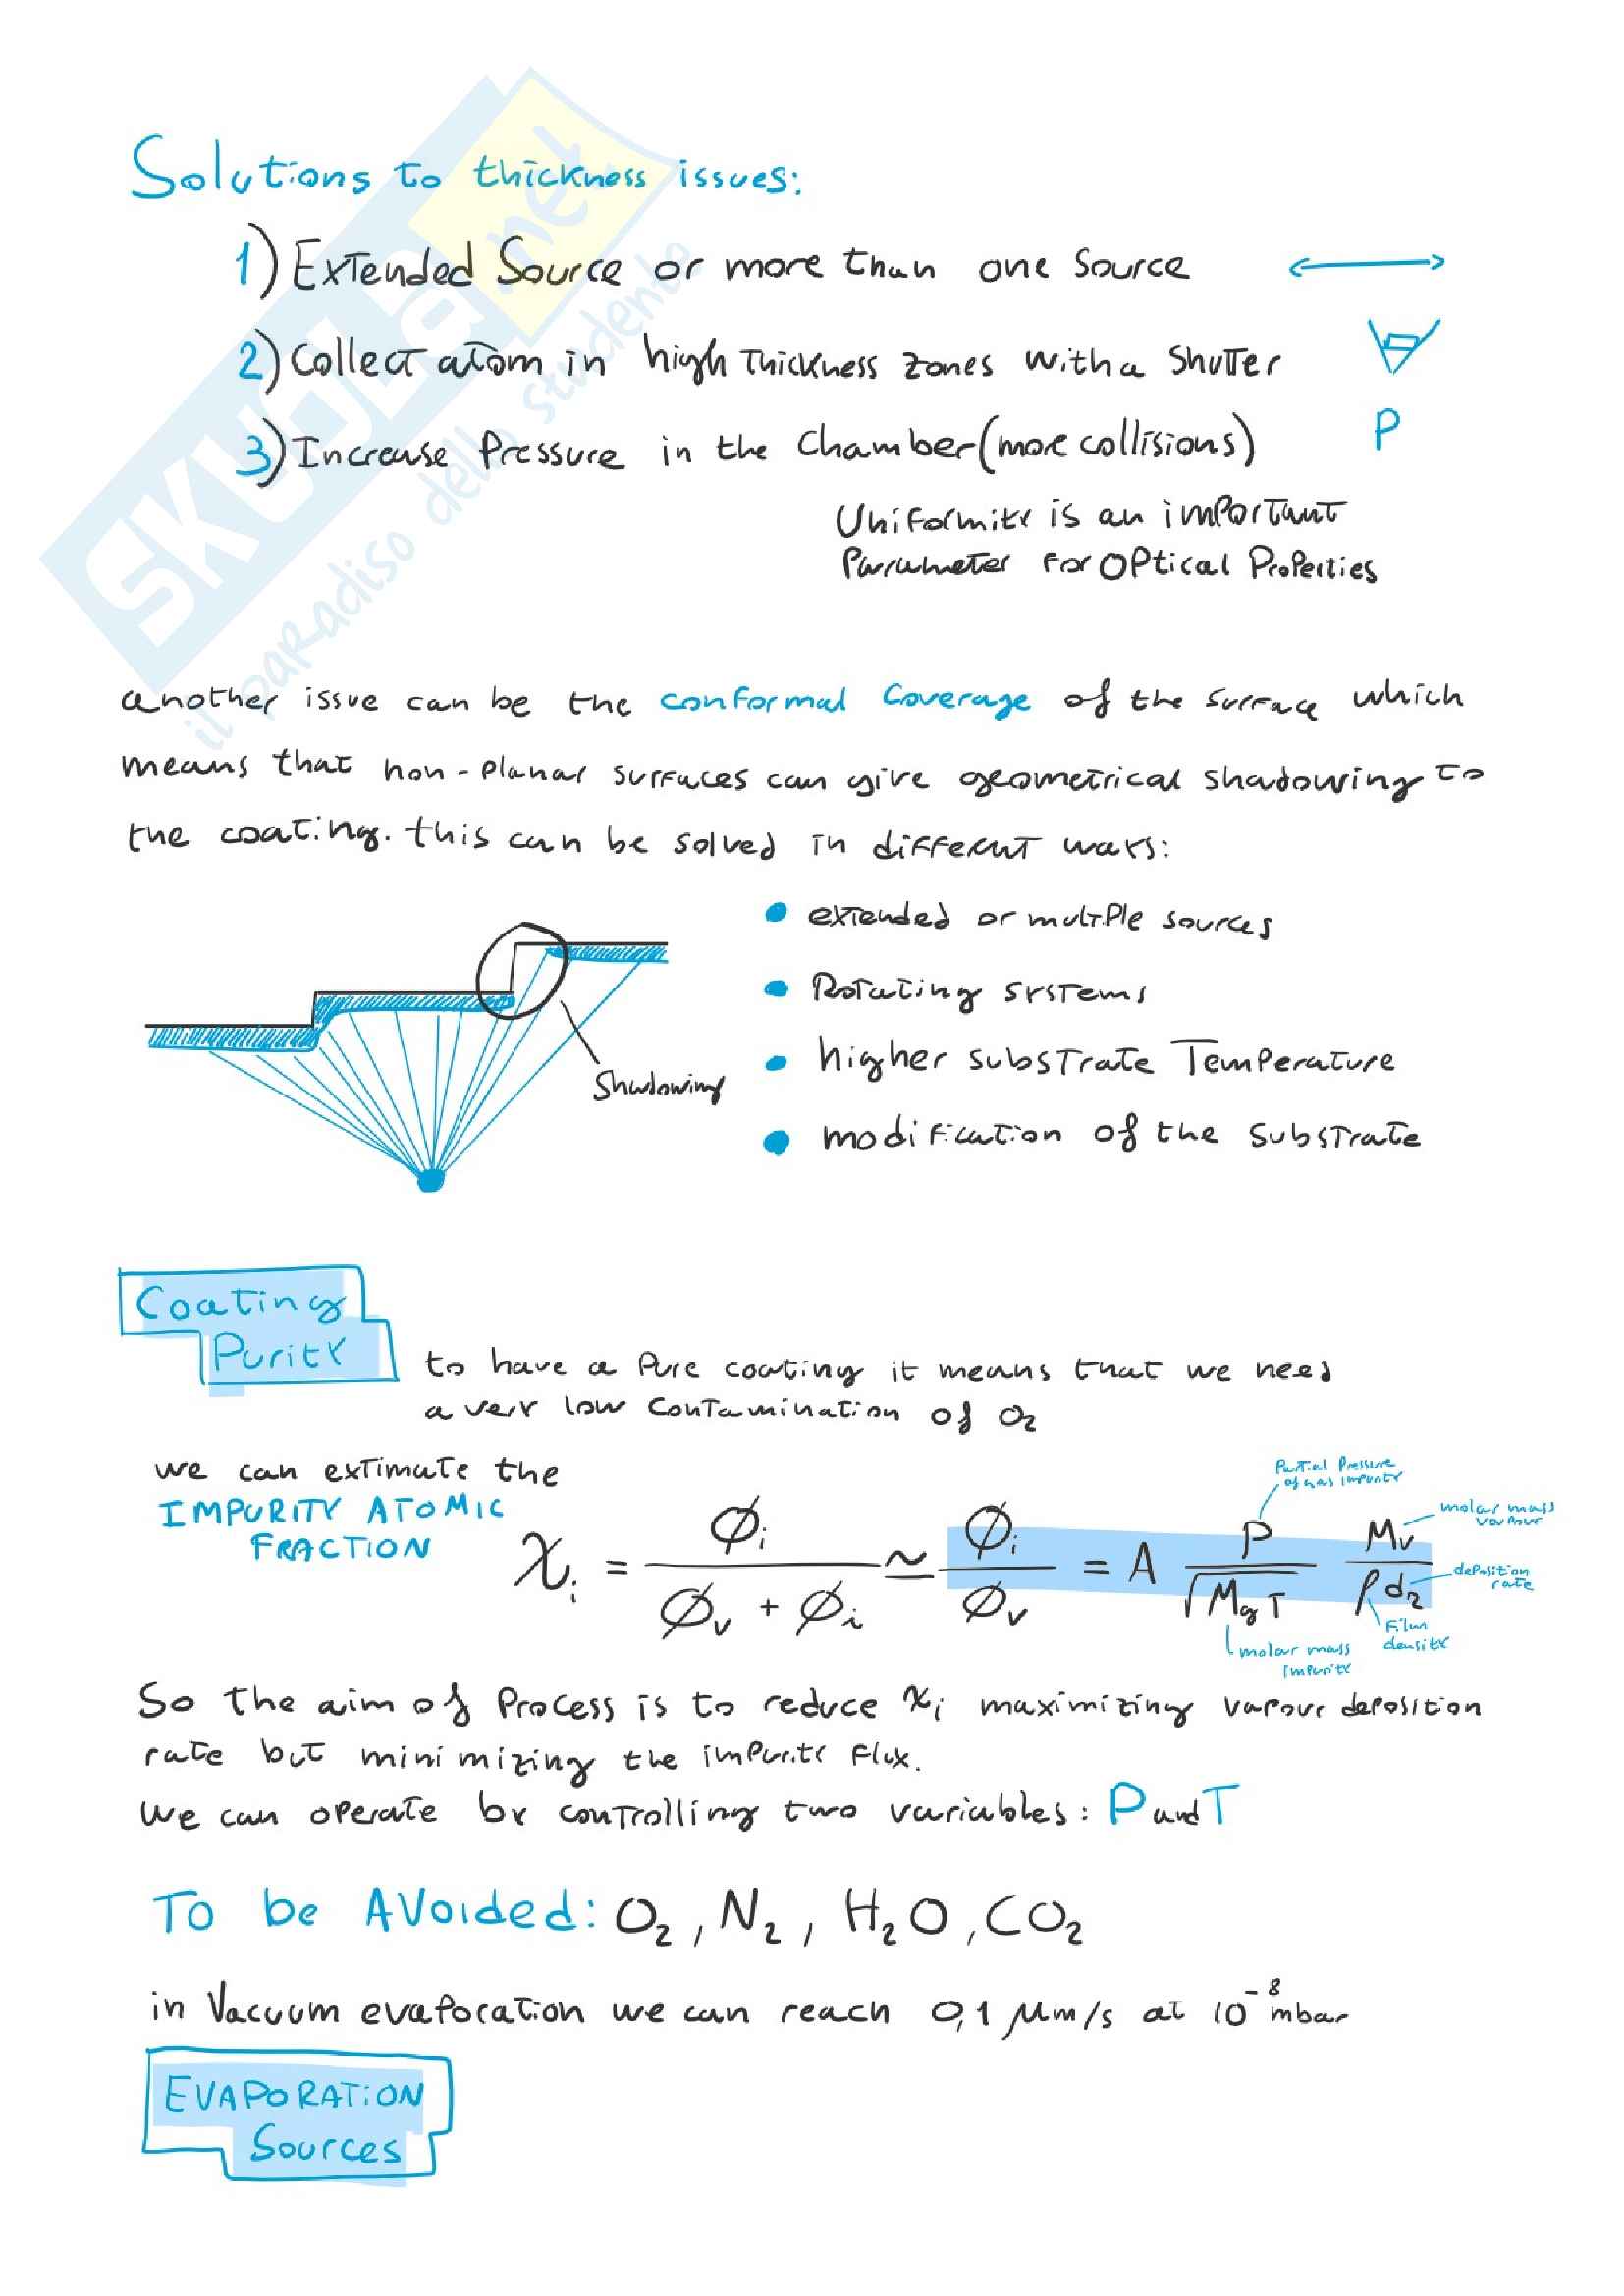 Solutions to thickness issues:
1) Extended Source or more than one source
2) Collect atom in high thickness zones with a Shutter
3) Increase Pressure in the Chamber (more collisions) P
Uniformity is an important
Parameter for Optical Properties
another issue can be the conformal coverage of the surface which
means that non-planar surfaces can give geometrical shadowing to
the coating. this can be solved in different ways:
• extended or multiple sources
• Rotating systems
• higher substrate Temperature
Shadowing
• modification of the substrate
Coating
Purity
to have a pure coating it means that we need
a very low contamination of O₂
we can extimate the
IMPURITY ATOMIC
FRACTION
χᵢ = ϕᵢ / (ϕᵥ + ϕᵢ) ≃ ϕᵢ / ϕᵥ = A P / √(M_g T) Mᵥ / (ρ d₂)
Partial Pressure
of gas impurity
molar mass
vapour
deposition
rate
Film
density
molar mass
impurity
So the aim of process is to reduce χᵢ maximizing vapour deposition
rate but minimizing the impurity flux.
we can operate by controlling two variables: P and T
To be Avoided: O₂, N₂, H₂O, CO₂
in Vacuum evaporation we can reach 0,1 μm/s at 10⁻⁸ mbar
EVAPORATION
Sources
SKUOLA.net
il paradiso dello studente